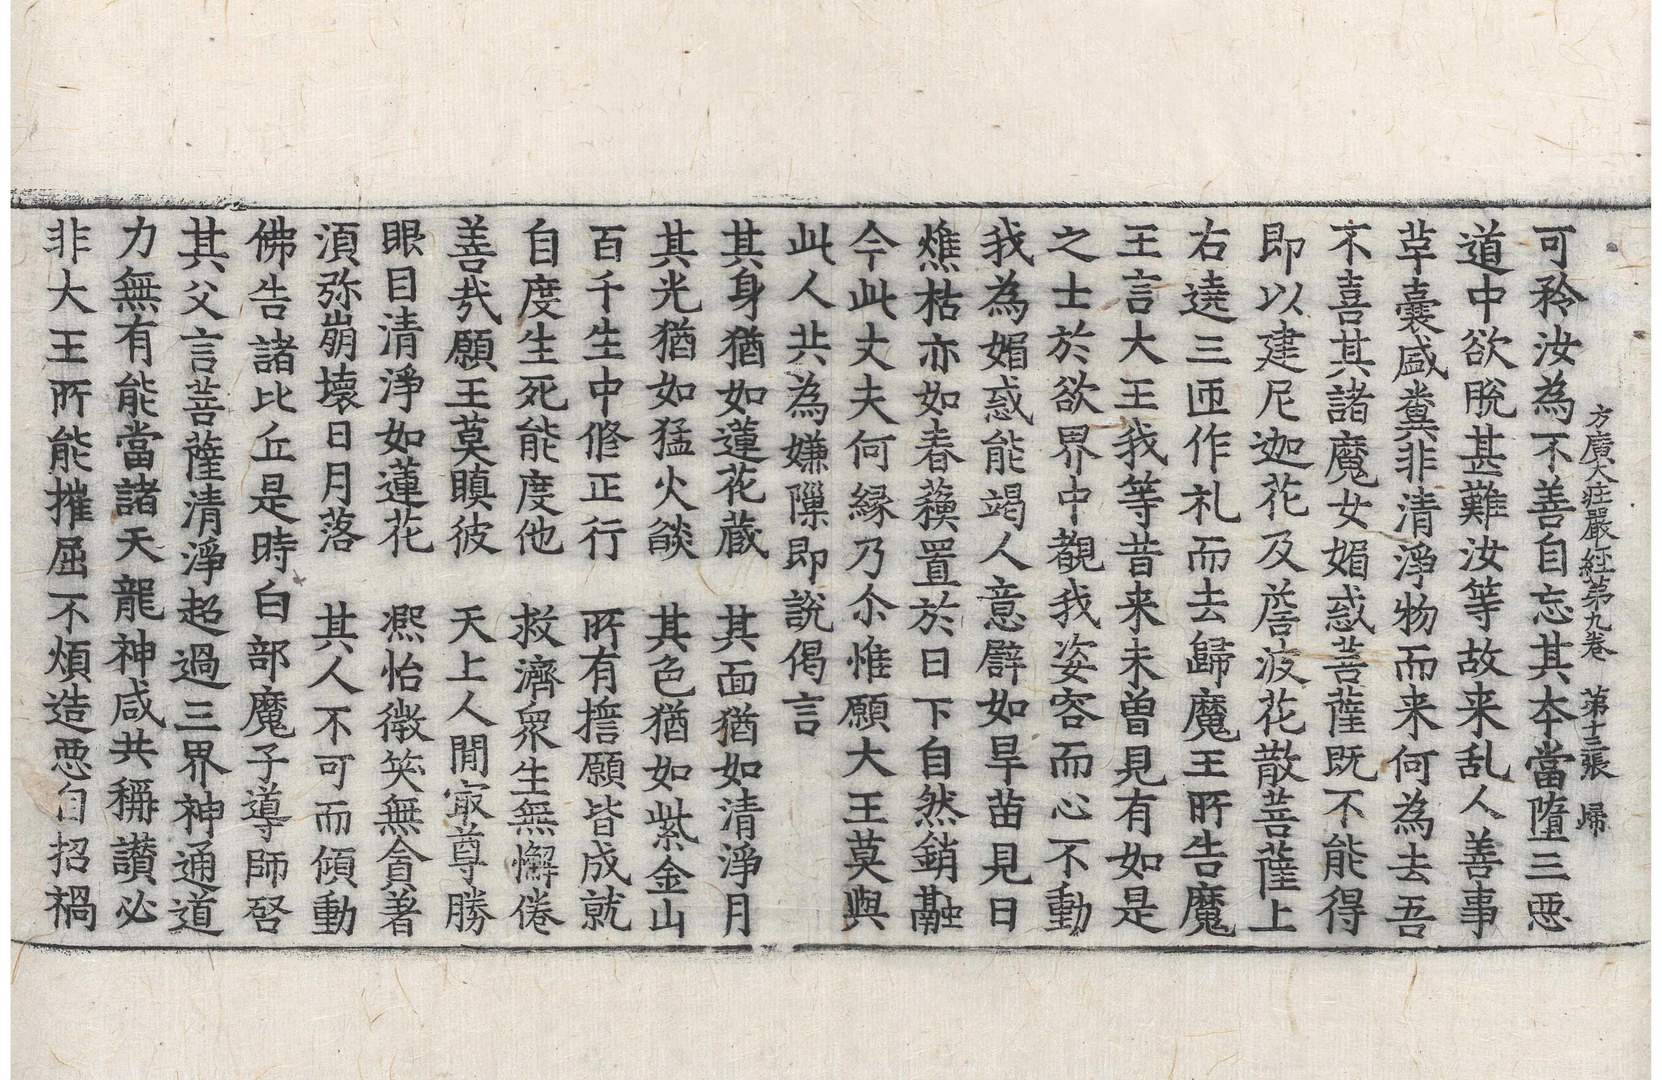 方廣大莊嚴經第九卷 第十三張 歸
可矜汝為不善自忘其本當墮三惡
道中欲脫甚難汝等故来乱人善事
草囊盛糞非清淨物而来何為去吾
不喜其諸魔女媚惑菩薩既不能得
即以建尼迦花及詹波花散菩薩上
右遶三匝作礼而去歸魔王所告魔
王言大王我等昔来未曾見有如是
之士於欲界中覩我姿容而心不動
我為媚惑能竭人意譬如旱苗見日
燋枯亦如春蘓置於日下自然銷融
今此丈夫何緣乃尒惟願大王莫與
此人共為嫌隟即說偈言
其身猶如蓮花蔵 其面猶如清淨月
其光猶如猛火燄 其色猶如紫金山
百千生中修正行 所有誓願皆成就
自度生死能度他 救濟衆生無懈倦
善哉願王莫瞋彼 天上人間㝡尊勝
眼目清淨如蓮花 熈怡微笑無貪著
湏弥崩壞日月落 其人不可而傾動
佛告諸比丘是時白部魔子導師啓
其父言菩薩清淨超過三界神通道
力無有能當諸天龍神咸共稱讃必
非大王所能摧屈不煩造惡自招禍